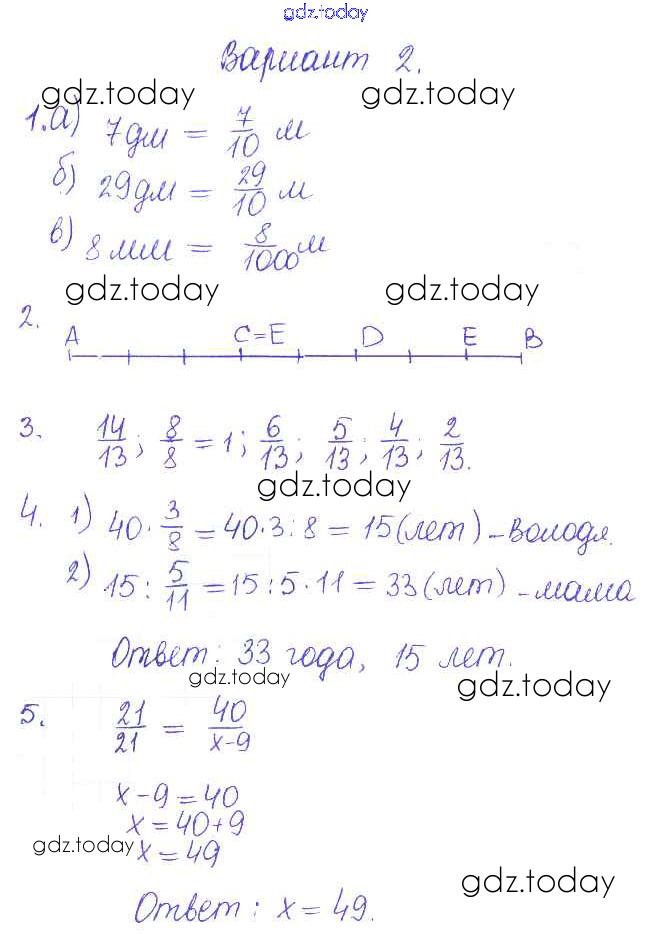 gdz.today
Вариант 2.
gdz.today gdz.today
1. а) 7 дм = 7/10 м
б) 29 дм = 29/10 м
в) 8 мм = 8/1000 м
gdz.today gdz.today
2. A C=E D E B
3. 14/13; 8/8 = 1; 6/13; 5/13; 4/13; 2/13.
gdz.today
4. 1) 40 · 3/8 = 40·3:8 = 15 (лет) – Володя.
2) 15 : 5/11 = 15:5·11 = 33 (лет) – мама
Ответ: 33 года, 15 лет.
gdz.today gdz.today
5. 21/21 = 40/(x-9)
x-9=40
x=40+9
gdz.today x=49
gdz.today
Ответ: x=49.